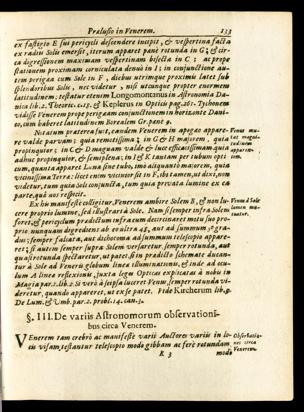 Prælusio in Venerem. 133
ex fastigio E sui pericyli descendere incipit, & vespertina facta
ex radiis Solis emerserit, iterum apparet panè rotunda in G; & cir-
ca digressionem maximam vespertinam bisecta in C; ac prope
stationem proximam corniculata denuò in I; in conjunctione au-
tem perigæa cum Sole in F, diebus utrimque proximis latet sub
splendoribus Solis, nec videtur, nisi utcunque propter enormem
latitudinem; testatur etenim Longomontanus in Astronomia Da-
nica lib.2. Theoric. c.15. & Keplerus in Opticis pag.261. Tychonem
vidisse Venerem prope perigæam conjunctionem in horizonte Dani-
co, cum haberet latitudinem Borealem Gr. penè 9.
Notatum præterea fuit, eandem Venerem in apogæo appare-
re valde parvam: quia remotissima; in G & H majorem, quia
propinquior; in C & D magnam valde & luce efficacissimam: quia
adhuc propinquior, & semiplena; in I & K tantam per tubum opti-
cum, quanta apparet Luna sine tubo, imò aliquanto majorem, quia
vicinissima Terræ: licet enim vicinior sit in F, ibi tamen, ut dixi, non
videtur, tum quia Soli conjuncta, tum quia privata lumine ex ea
parte, quâ nos respicit.
Venus mu-
tat magni-
tudinem
apparen-
tem.
Ex his manifestè colligitur, Venerem ambire Solem B, & non lu-
cere proprio lumine, sed illustrari à Sole. Nam si semper infra Solem
foret, & pericyclum prædictum infra eum decircinaret motu suo pro-
prio nunquam digrediens ab eo ultra 48, aut ad summum 50 gra-
dus; semper falcata, aut dichotoma ad summum telescopio appare-
ret; si autem semper supra Solem versaretur, semper rotunda, aut
quasi rotunda spectaretur, ut patet, si in prædicto schemate ducan-
tur à Sole ad Veneris globum lineæ illuminationis, & inde ad ocu-
lum A lineæ reflexionis, juxta leges Opticas explicatas à nobis in
Magia par.1. lib.2. Si verò à seipsa luceret Venus, semper rotunda vi-
deretur, quando apparet, ut ex se patet. Vide Kircherum lib.9.
De Lum. & Umb. par.2. probl.14. can.3.
Venus à Sole
lumen mu-
tuatur.
§. III. De variis Astronomorum observationi-
bus circa Venerem.
VEnerem tam crebrò ac manifestè varii Auctores variis in lo-
cis visam, testantur telescopio modò gibbam ac ferè rotundam
Observatio-
nes circa
Venerem.
R 3 modò